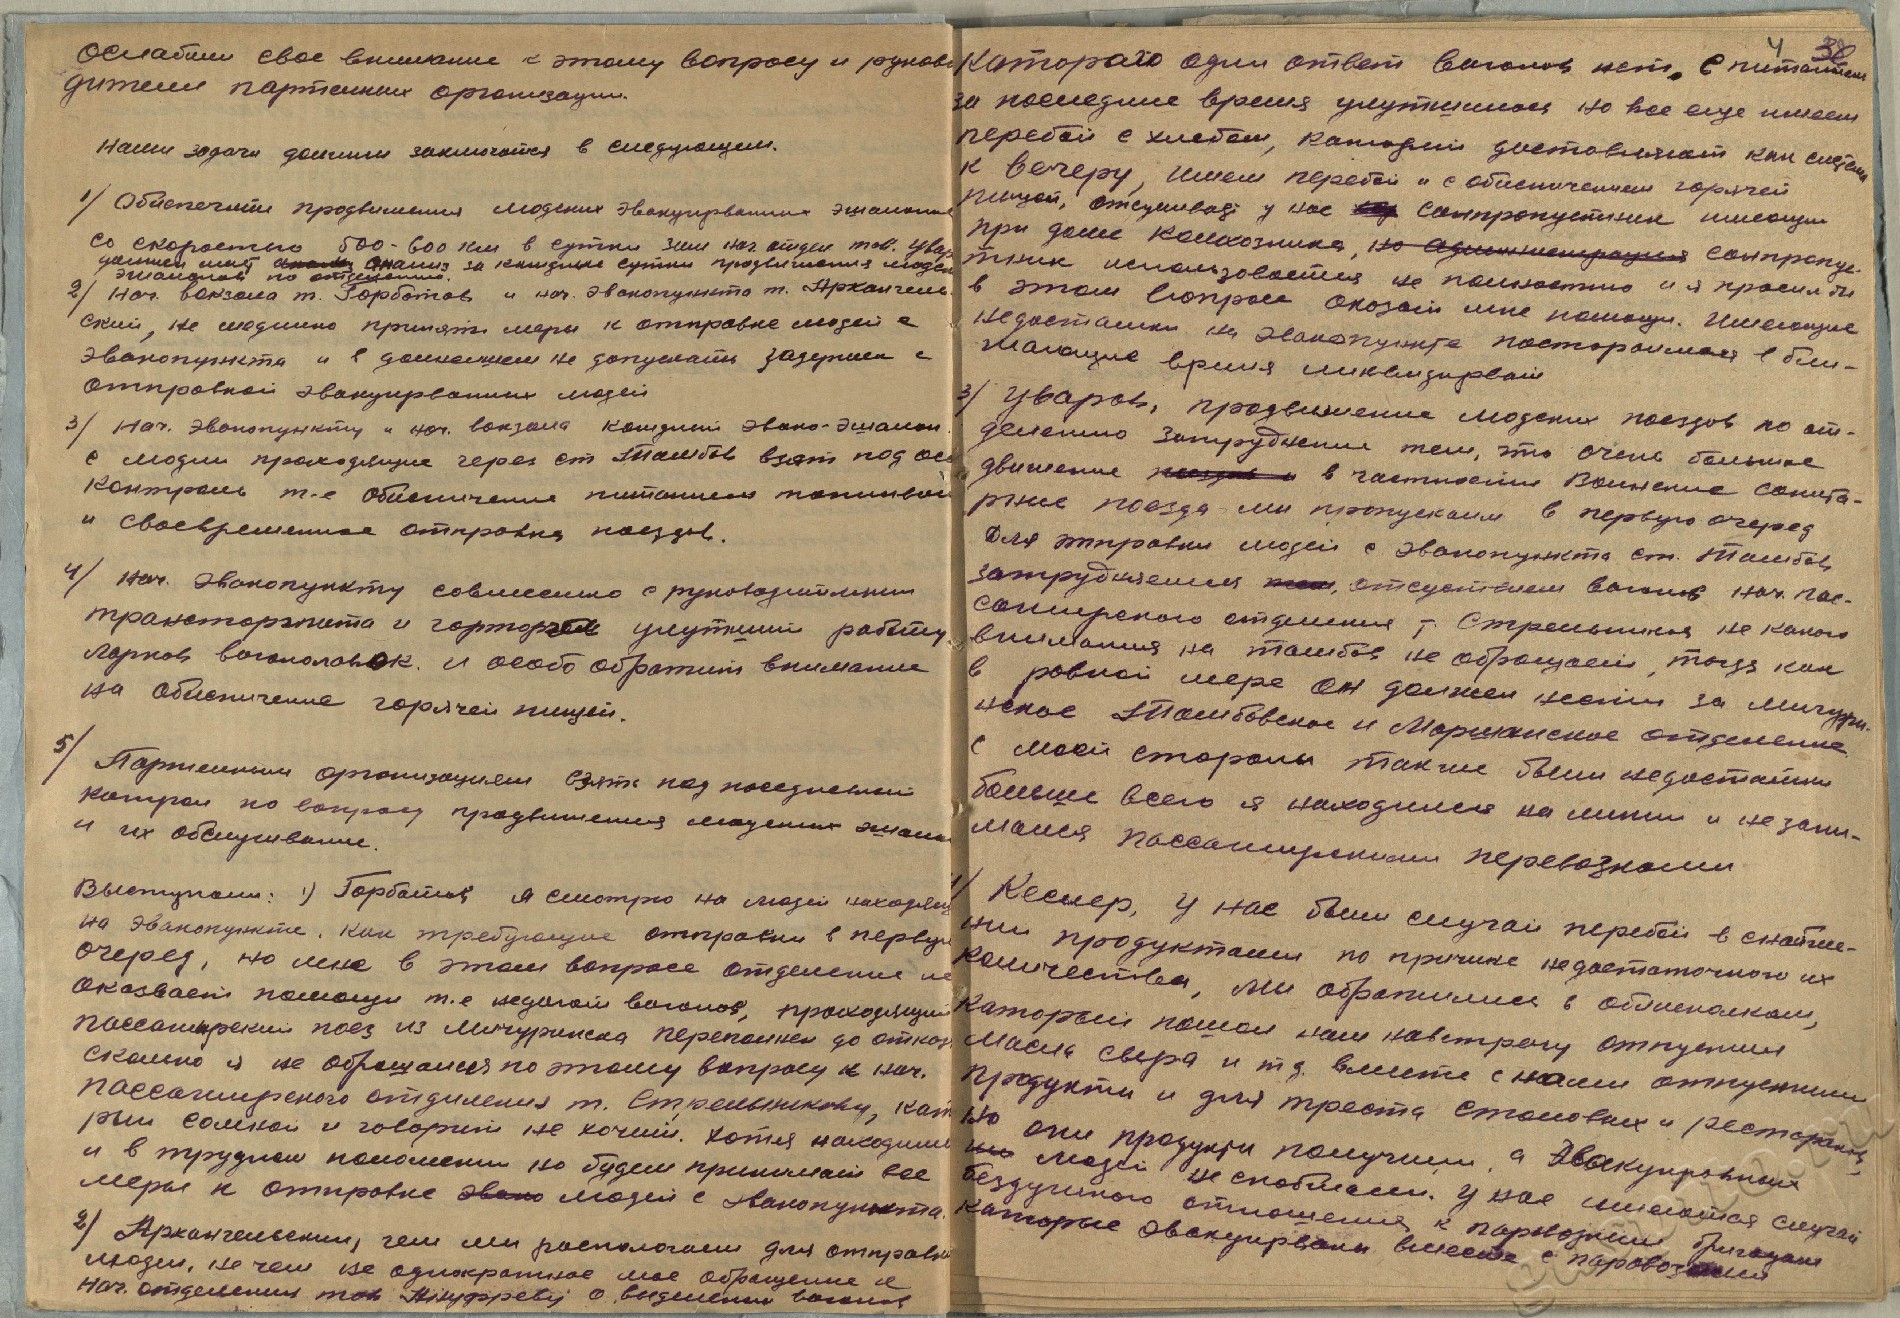 Ослабили свое внимание к этому вопросу и руково
дители партейных организации.
Наши задачи должны заключатся в следующем.
1/ Обиспечити продвижения людских эвакуированных эшалонов
со скоростью 500-600 км в сутки зам нач. отдел тов. Увар
должен анализ за каждые сутки продвижения людск
эшалонов по отделению.
2/ Нач. вокзала т. Горбатов и нач. эвакопункта т. Архангель
ский, не медлино принять меры к отправке людей с
эвакопункта и в дальнейшем не допускать задержки с
отправкой эвакуированных людей
3/ Нач. эвакопункту и нач. вокзала каждый эвако-эшалон
с людми проходящие через ст Тамбов взят под осо
контроль т-е обиспичение питанием топливом
и своевременное отправка поездов.
4/ Нач. эвакопункту совместно с руководителями
трансторгпита и горторгом улутший работу
ларков вагонлавок. и особо обратит внимание
на обиспичение горячей пищей.
5/ Партейным организациям взять под поседневный
контрол по вопросу продвижения людских эшало
и их обслуживание.
Выступали: 1) Горбатов я смотрю на людей находящ
на эвакопункте, как требующие отправки в первую
очеред, но мне в этом вопросе отделение не
оказвает помощи т.е недают вагонов, проходящий
пассажирский поез из Мичуринска переполнен до отказ
сколько я не обращался по этому вопросу к нач.
пассажирского отделения т. Стрельникову, кат
рый сомной и говорит не хочит. хотя находимся
и в трудном положении но будем принимат все
меры к отправке эвако людей с эвакопункта.
2/ Архангельский, чем мы располагаем для отправки
людей, не чем не однократное мое обращение к
нач. отделения тов Ануфреву о выделении вагонов
4 38
Каторого один ответ вагонов нет. С питанием
за последние время улутшилося но все еще имеем
перебои с хлебом, каторый доставляют как система
к вечеру, имеем перебои и с обиспичением горячей
пищей, отсутвовает у нас санпропустник имеющий
при доме колхозника, но администрация санпропус-
тник использовается не полностью и я просил бы
в этом вопросе оказат мне помощи. Имеющие
недостатки на эвакопункте постораимся в бли-
жающие время ликвидироват
3/ Уваров, продвижение людских поездов по от-
делению затруднении тем, что очень большое
движение поездов и в частности Воинские санита-
рные поезда мы пропускаем в первую очеред
Для отправки людей с эвакопункта ст. Тамбов
затрудняемся тем, отсуствием вагонов нач. пас-
сажирского отделения т. Стрельников не какого
внимания на тамбов не обращает, тогда как
в равной мере он должен нести за мичури-
нское Тамбовское и Моршанское отделение
с моей стороны также были недостатки
больше всего я находился на линии и не зани-
мался пассажирскими перевозками
4/ Кеслер, у нас были случаи перебои в снабже-
нии продуктами по причине недостаточного их
количества, мы обратились в облисполком,
каторый пошол нам навстречу отпустил
масла сыра и т д. вместе с нами отпустили
продукты и для треста столовых и ресторанов,
но они продукты получили, а Эвакуированых
ны людей не снабжали. У нас имеются случаи
бездушного отношения к паровозным бригадам
каторые эвакуированы вместе с паровозами